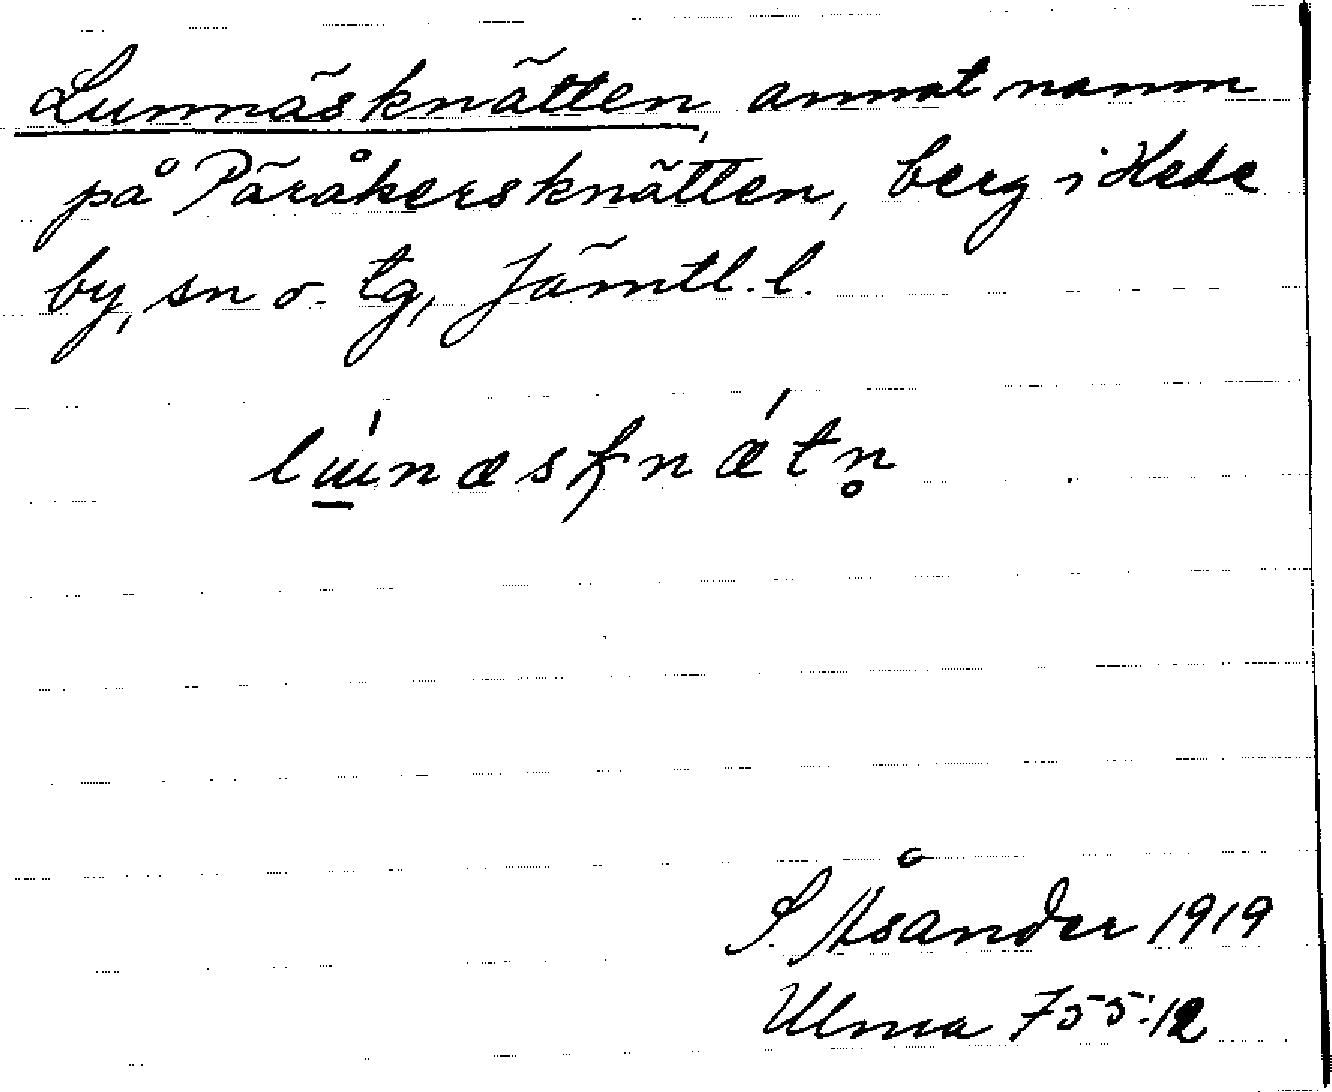 Lunnäsknätten, annat namn
på Päråkersknätten, berg i Hede
by, sn o. tg, Jämtl. l.
S. Åsander 1919
Ulma 755:12